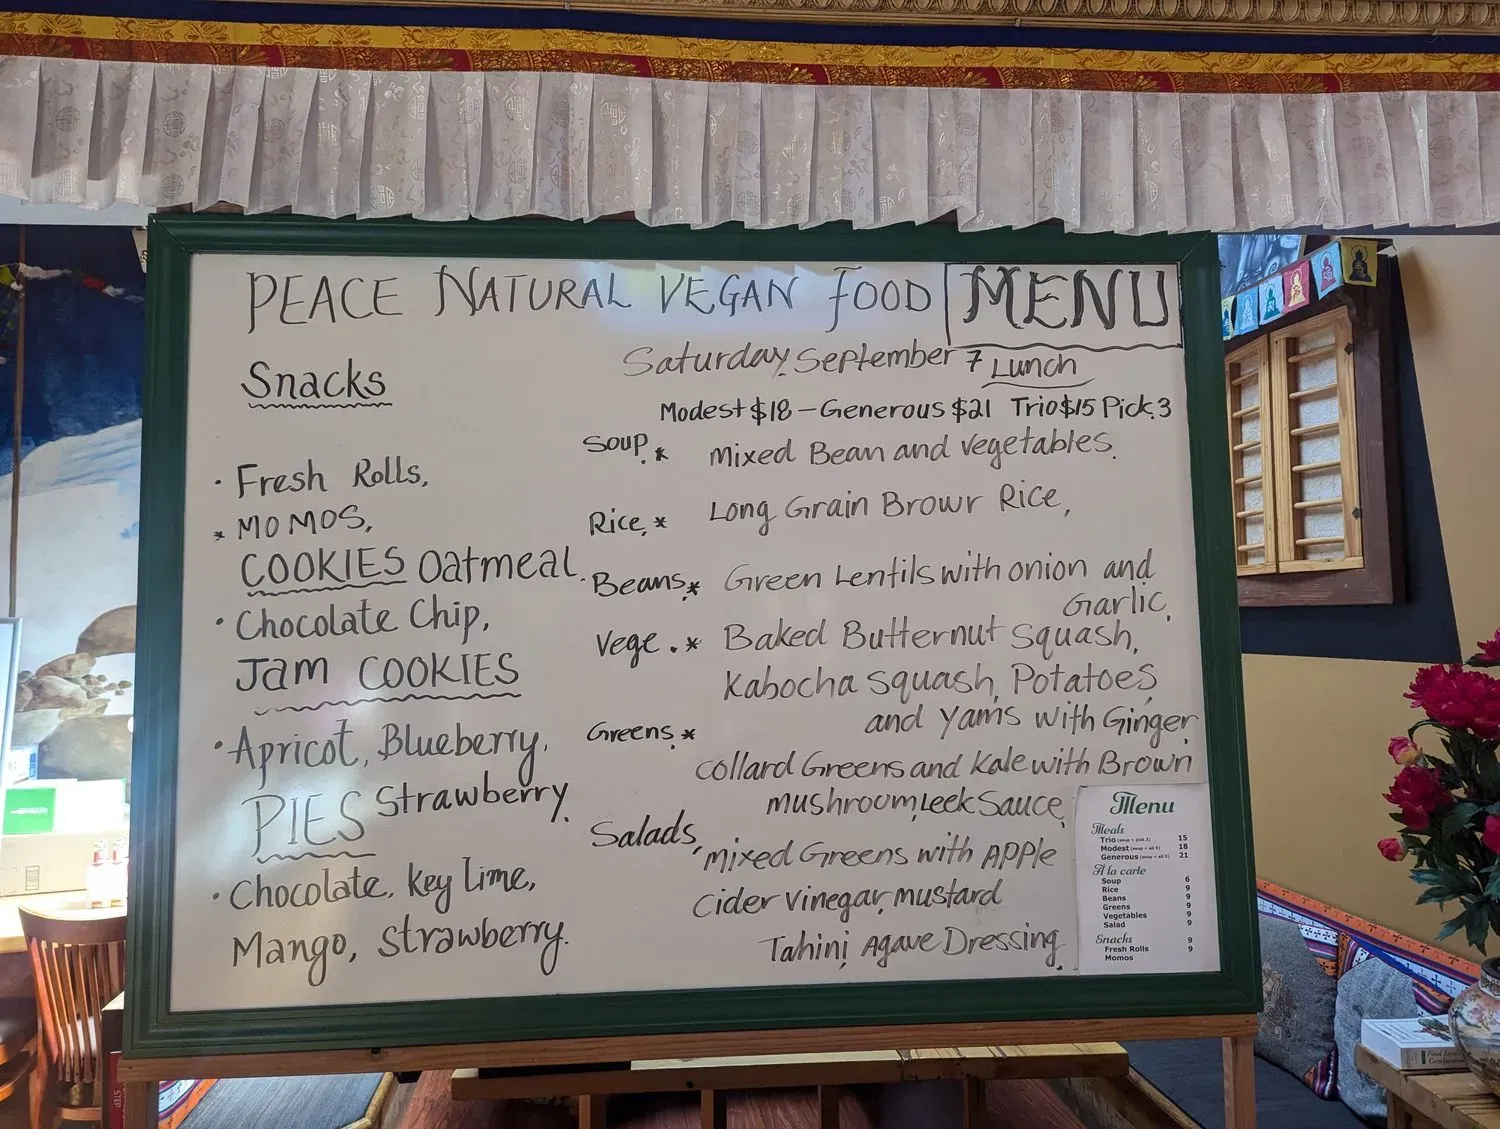 PEACE NATURAL VEGAN FOOD MENU
Saturday, September 7 Lunch
Modest $18 – Generous $21 Trio $15 Pick.3
Snacks
· Fresh Rolls,
* MOMOS,
COOKIES Oatmeal.
· Chocolate Chip,
Jam COOKIES
· Apricot, Blueberry,
Strawberry.
PIES
· Chocolate, Key lime,
Mango, Strawberry.
Soup.* Mixed Bean and vegetables.
Rice,* Long Grain Browr Rice,
Beans,* Green Lentils with onion and
Garlic,
Vege.* Baked Butternut Squash,
Kabocha squash, Potatoes
and yams with Ginger
Greens,*
collard Greens and kale with Brown
mushroom, Leek Sauce,
Salads, mixed Greens with APPle
cider vinegar, mustard
Tahini, Agave Dressing,
Menu
Meals
Trio (soup + pick 3) 15
Modest (soup + all 5) 18
Generous (soup + all 5) 21
À la carte
Soup 6
Rice 9
Beans 9
Greens 9
Vegetables 9
Salad 9
Snacks
Fresh Rolls 9
Momos 9
STEP